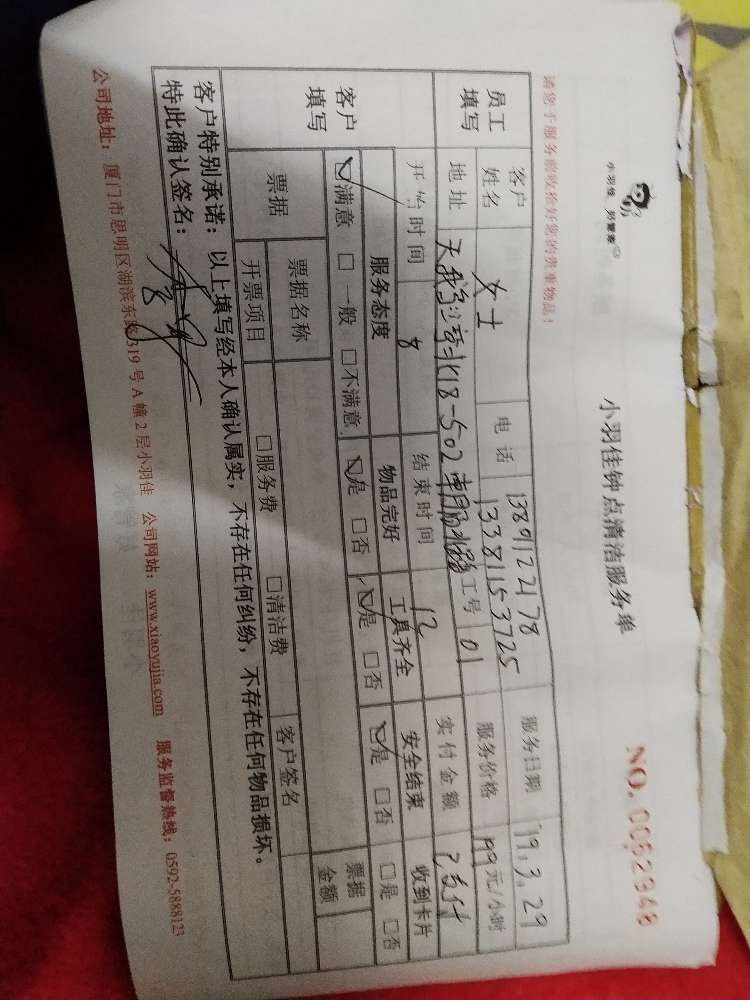 小羽佳 好管家
小羽佳钟点清洁服务单
NO. 0052348
请您于服务前收检好您的贵重物品！
员工填写 客户姓名 女士 电话 13891122178 13381153725 服务日期 19.3.29
地址 北18-502 工号 01 服务价格 99元/小时
开始时间 8 结束时间 12 实付金额 已支付
客户填写 服务态度 物品完好 工具齐全 安全结束 收到卡片
☑满意 □一般 □不满意 ☑是 □否 ☑是 □否 ☑是 □否 □是 □否
票据 票据名称 票据金额
开票项目 □服务费 □清洁费 客户签名
客户特别承诺：以上填写经本人确认属实，不存在任何纠纷，不存在任何物品损坏。
特此确认签名：
公司地址：厦门市思明区湖滨东路319号A幢2层小羽佳 公司网站：www.xiaoyujia.com 服务监督热线：0592-5888123